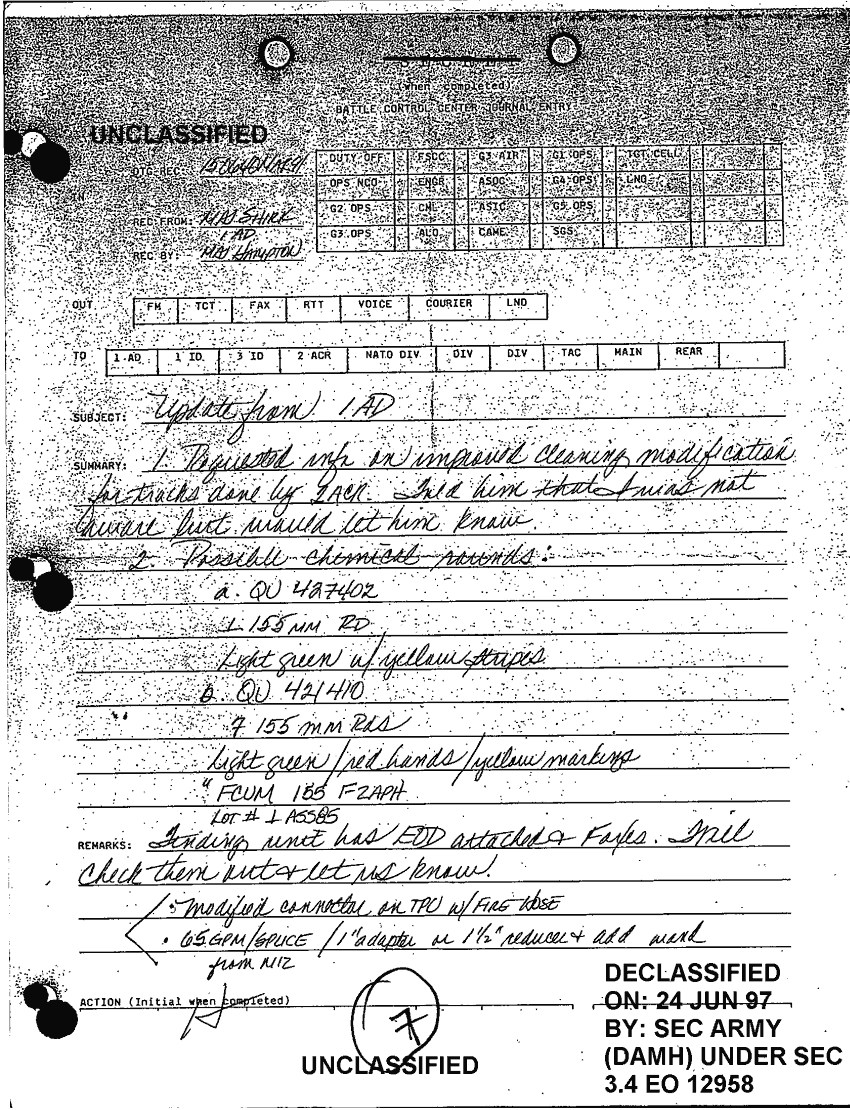 (when completed)
BATTLE CONTROL CENTER JOURNAL ENTRY
UNCLASSIFIED
DTG REC:
DUTY OFF FSCC G3 AIR G1 OPS TGT CELL
IN
OPS NCO ENGR ASOC G4 OPS LNO
REC FROM: MAJ SHIRK
G2 OPS CML ASIC G5 OPS
1 AD
G3 OPS ALO CAME SGS
REC BY: MAJ HAMPTON
OUT FM TCT FAX RTT VOICE COURIER LNO
TO 1 AD 1 ID 3 ID 2 ACR NATO DIV DIV DIV TAC MAIN REAR
SUBJECT: Update from 1 AD
SUMMARY: 1. Requested info on improved cleaning modification
for tracks done by 2ACR. Told him that I was not
aware but would let him know.
2. Possible chemical rounds:
a. QU 427402
1 155 MM RD
Light green w/ yellow stripes
b. QU 421410
7 155 mm Rds
Light green / red bands / yellow markings
" FCUM 155 F2APH
LOT # 1 AS585
REMARKS: Finding unit has EOD attached + Foxes. Will
check them out + let us know.
• Modified connector on TPU w/ FIRE HOSE
• 65 GPM/SPLICE / 1" adapter or 1½" reducer + add wand
from M12
ACTION (Initial when completed)
7
UNCLASSIFIED
DECLASSIFIED
ON: 24 JUN 97
BY: SEC ARMY
(DAMH) UNDER SEC
3.4 EO 12958